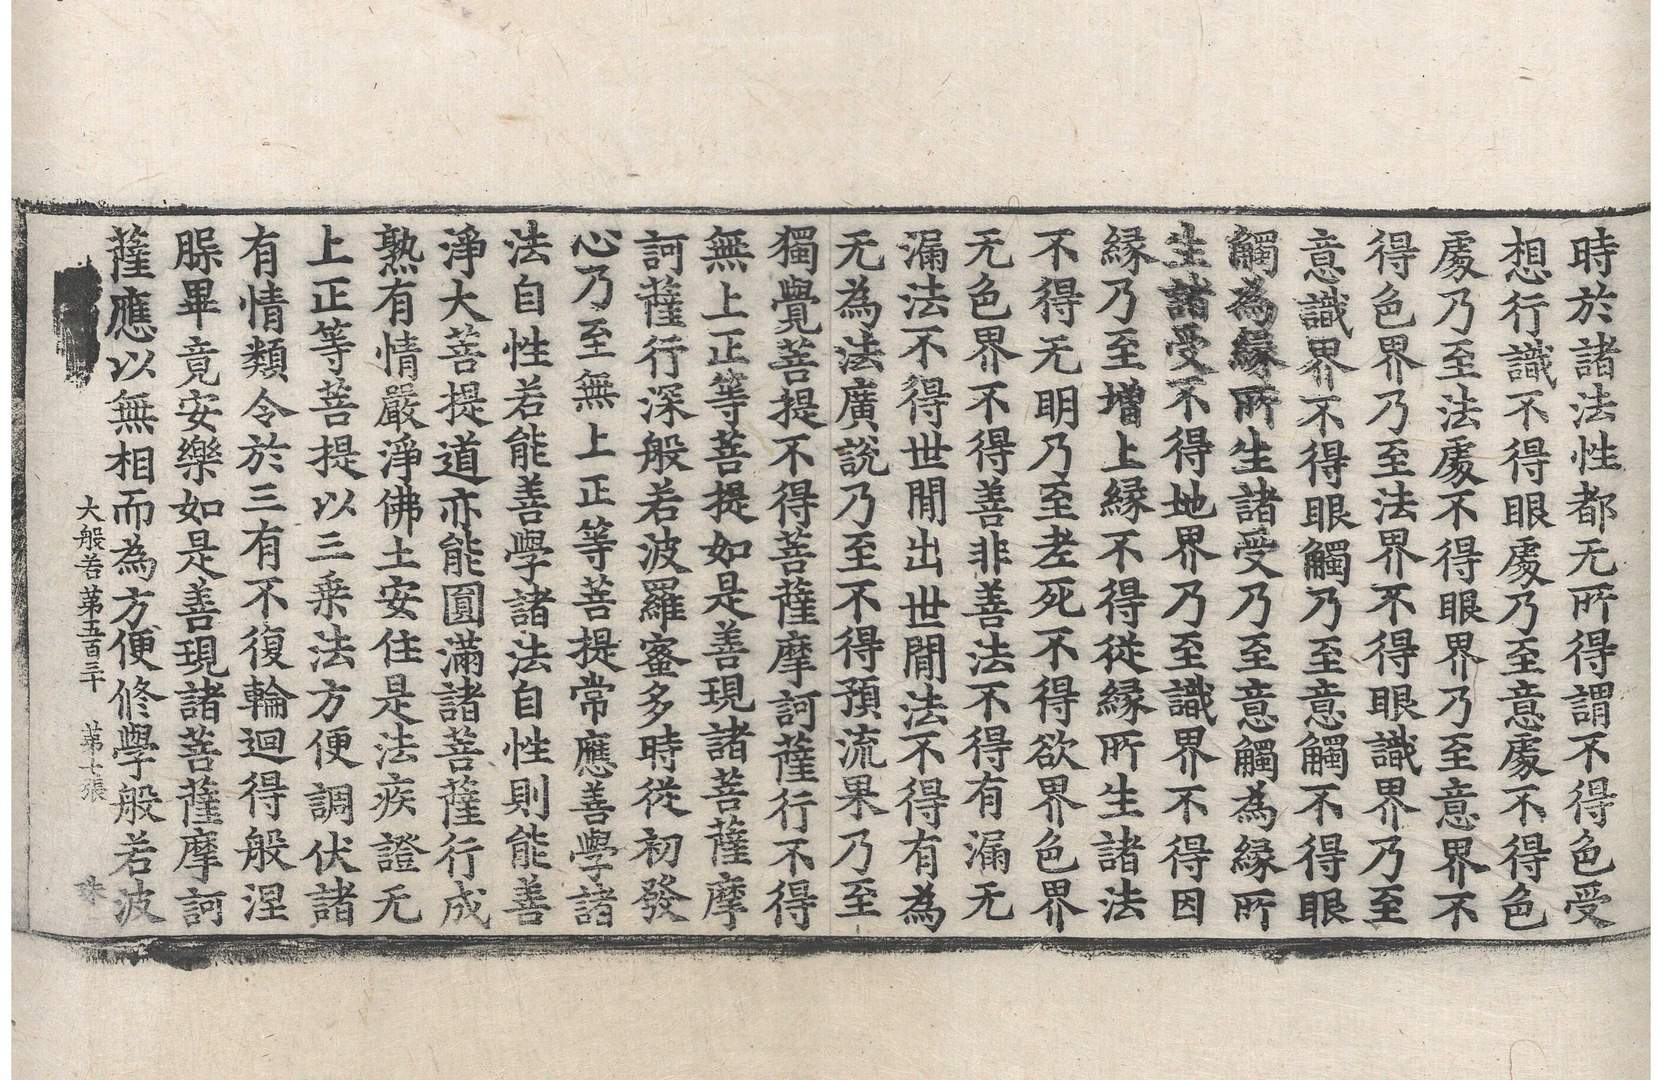 時於諸法性都无所得謂不得色受
想行識不得眼處乃至意處不得色
處乃至法處不得眼界乃至意界不
得色界乃至法界不得眼識界乃至
意識界不得眼觸乃至意觸不得眼
觸為緣所生諸受乃至意觸為緣所
生諸受不得地界乃至識界不得因
緣乃至增上緣不得從緣所生諸法
不得无明乃至老死不得欲界色界
无色界不得善非善法不得有漏无
漏法不得世閒出世閒法不得有為
无為法廣說乃至不得預流果乃至
獨覺菩提不得菩薩摩訶薩行不得
無上正等菩提如是善現諸菩薩摩
訶薩行深般若波羅蜜多時從初發
心乃至無上正等菩提常應善學諸
法自性若能善學諸法自性則能善
淨大菩提道亦能圓滿諸菩薩行成
熟有情嚴淨佛土安住是法疾證无
上正等菩提以三乘法方便調伏諸
有情類令於三有不復輪迴得般涅
槃畢竟安樂如是善現諸菩薩摩訶
薩應以無相而為方便修學般若波
大般若第五百三十 第七張 珠